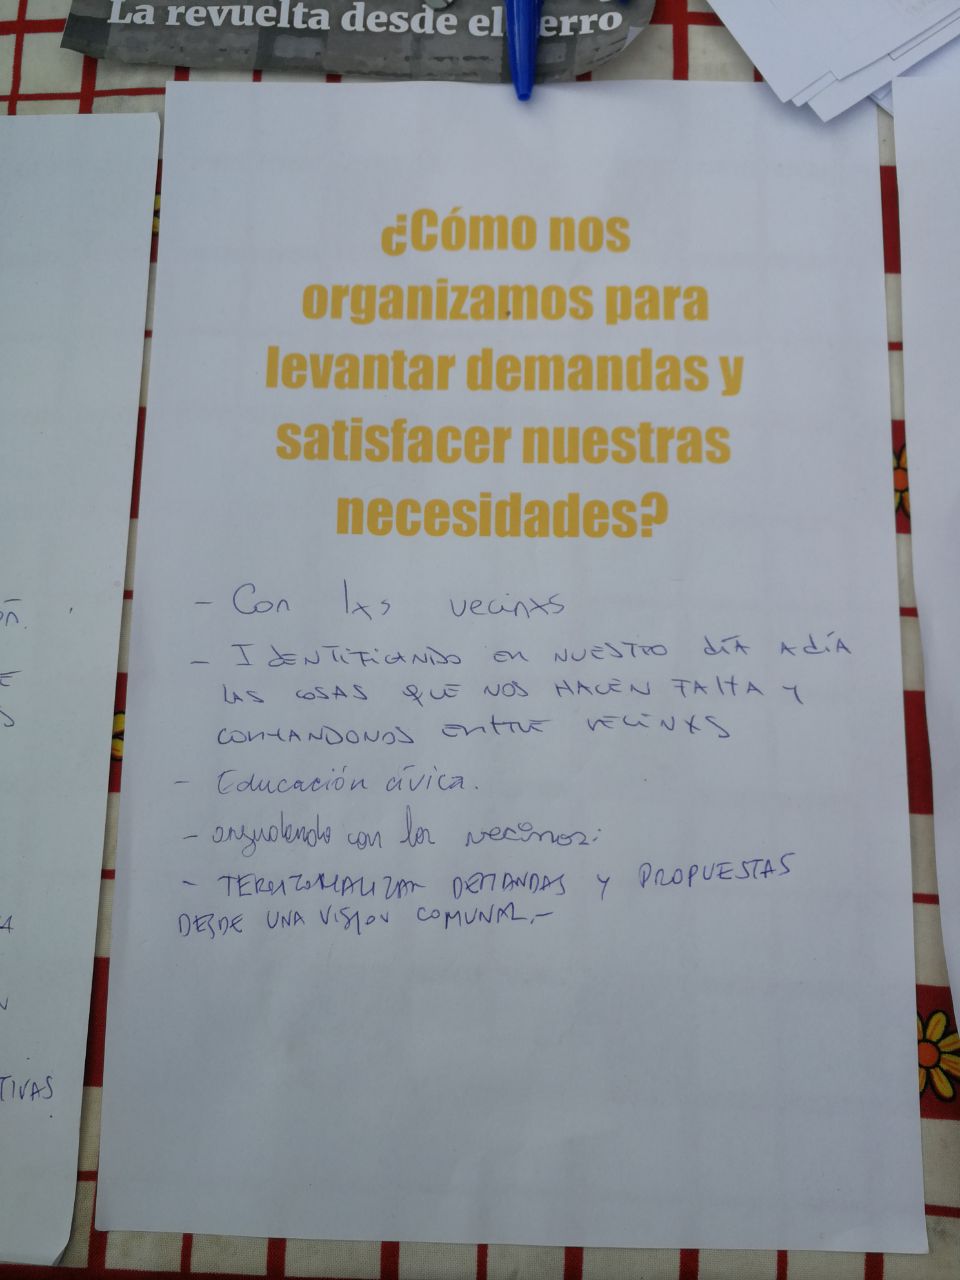 La revuelta desde el erro
¿Cómo nos
organizamos para
levantar demandas y
satisfacer nuestras
necesidades?
- Con lxs vecinxs
- Identificando en nuestro día a día
las cosas que nos hacen falta y
contandonos entre vecinxs
- Educación cívica.
- con los vecinos.
- TERRITORIALIZAR DEMANDAS y PROPUESTAS
DESDE UNA VISION COMUNAL.-
TIVAS